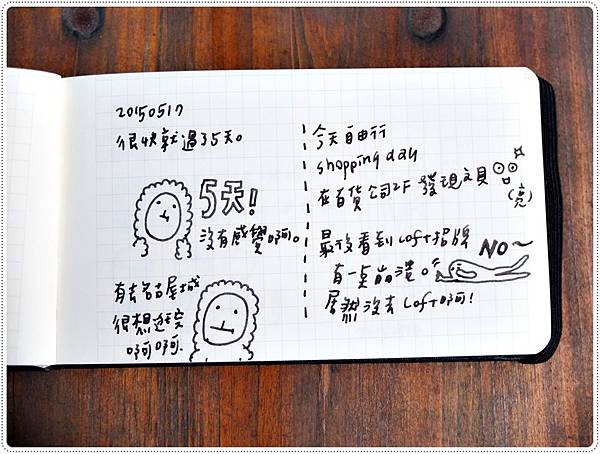 20150517
很快就過了5天。
5天!
沒有感覺啊。
有去名古屋城
很想逛完
啊啊.
今天自由行
shopping day
在百貨公司2F 發現文具
(亮)
最後看到Loft招牌
有一点崩潰。
NO~
居然沒去Loft啊!